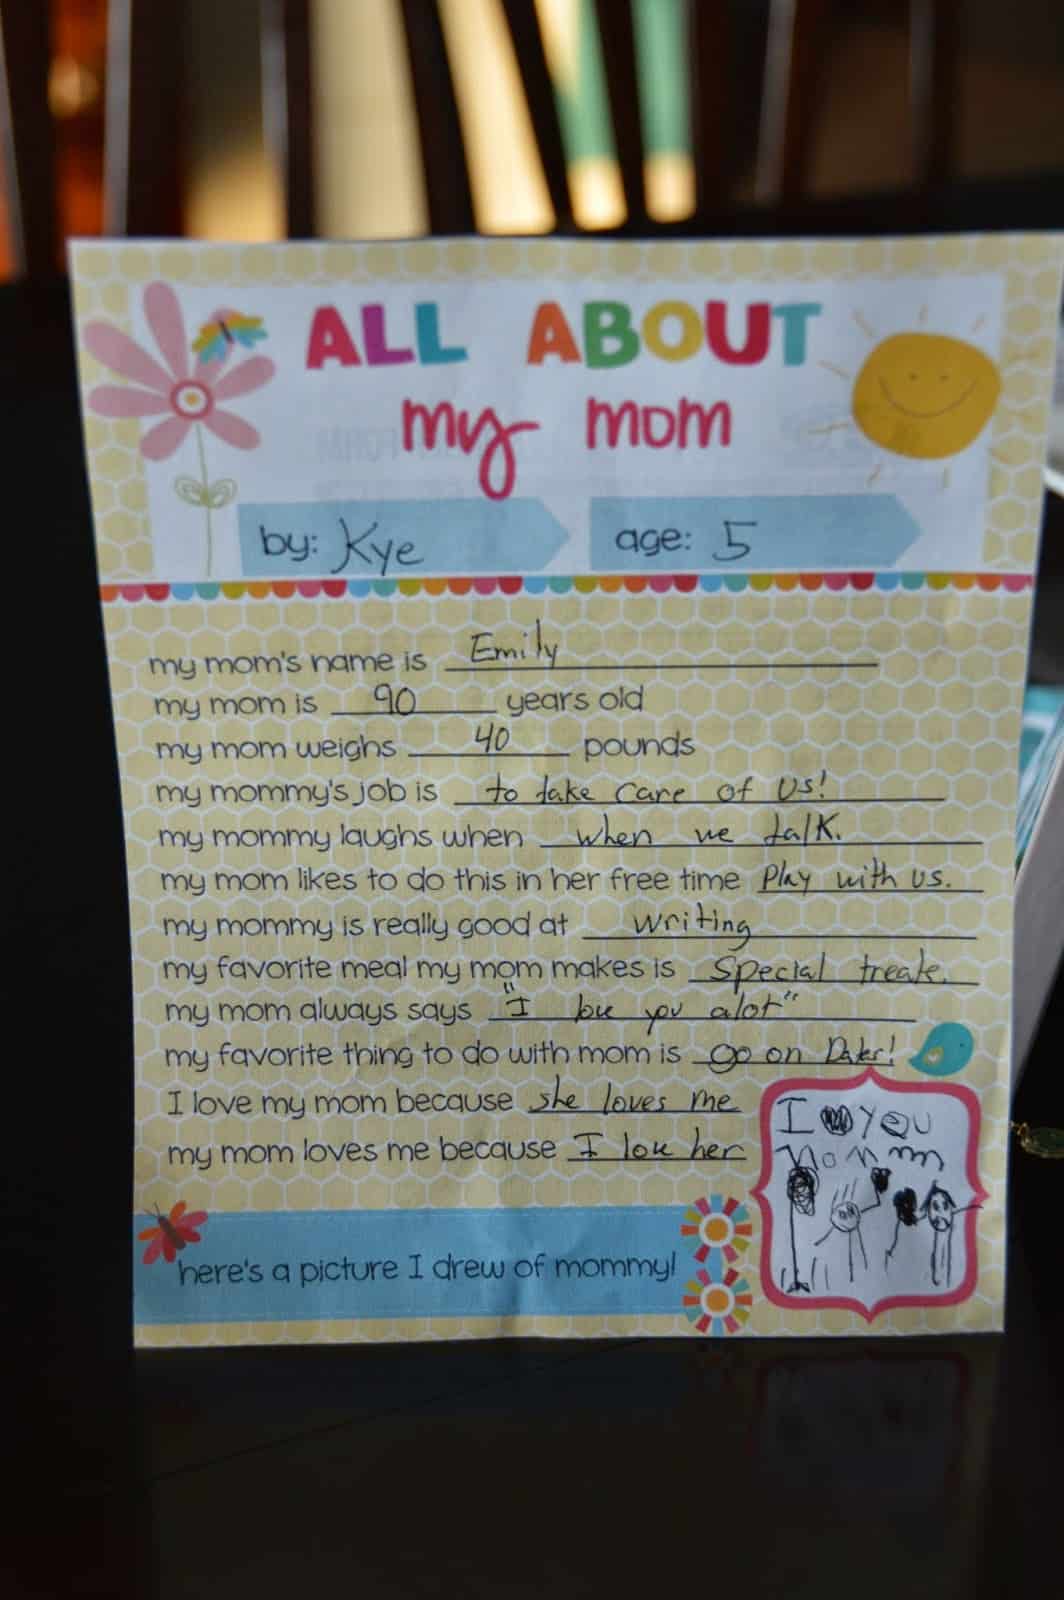 ALL ABOUT
my mom
by: Kye age: 5
my mom's name is Emily
my mom is 90 years old
my mom weighs 40 pounds
my mommy's job is to take care of us!
my mommy laughs when when we talk.
my mom likes to do this in her free time Play with us.
my mommy is really good at writing
my favorite meal my mom makes is special treats.
my mom always says "I love you alot"
my favorite thing to do with mom is go on Dates!
I love my mom because she loves me
my mom loves me because I love her
I yOU
Mommm
here's a picture I drew of mommy!